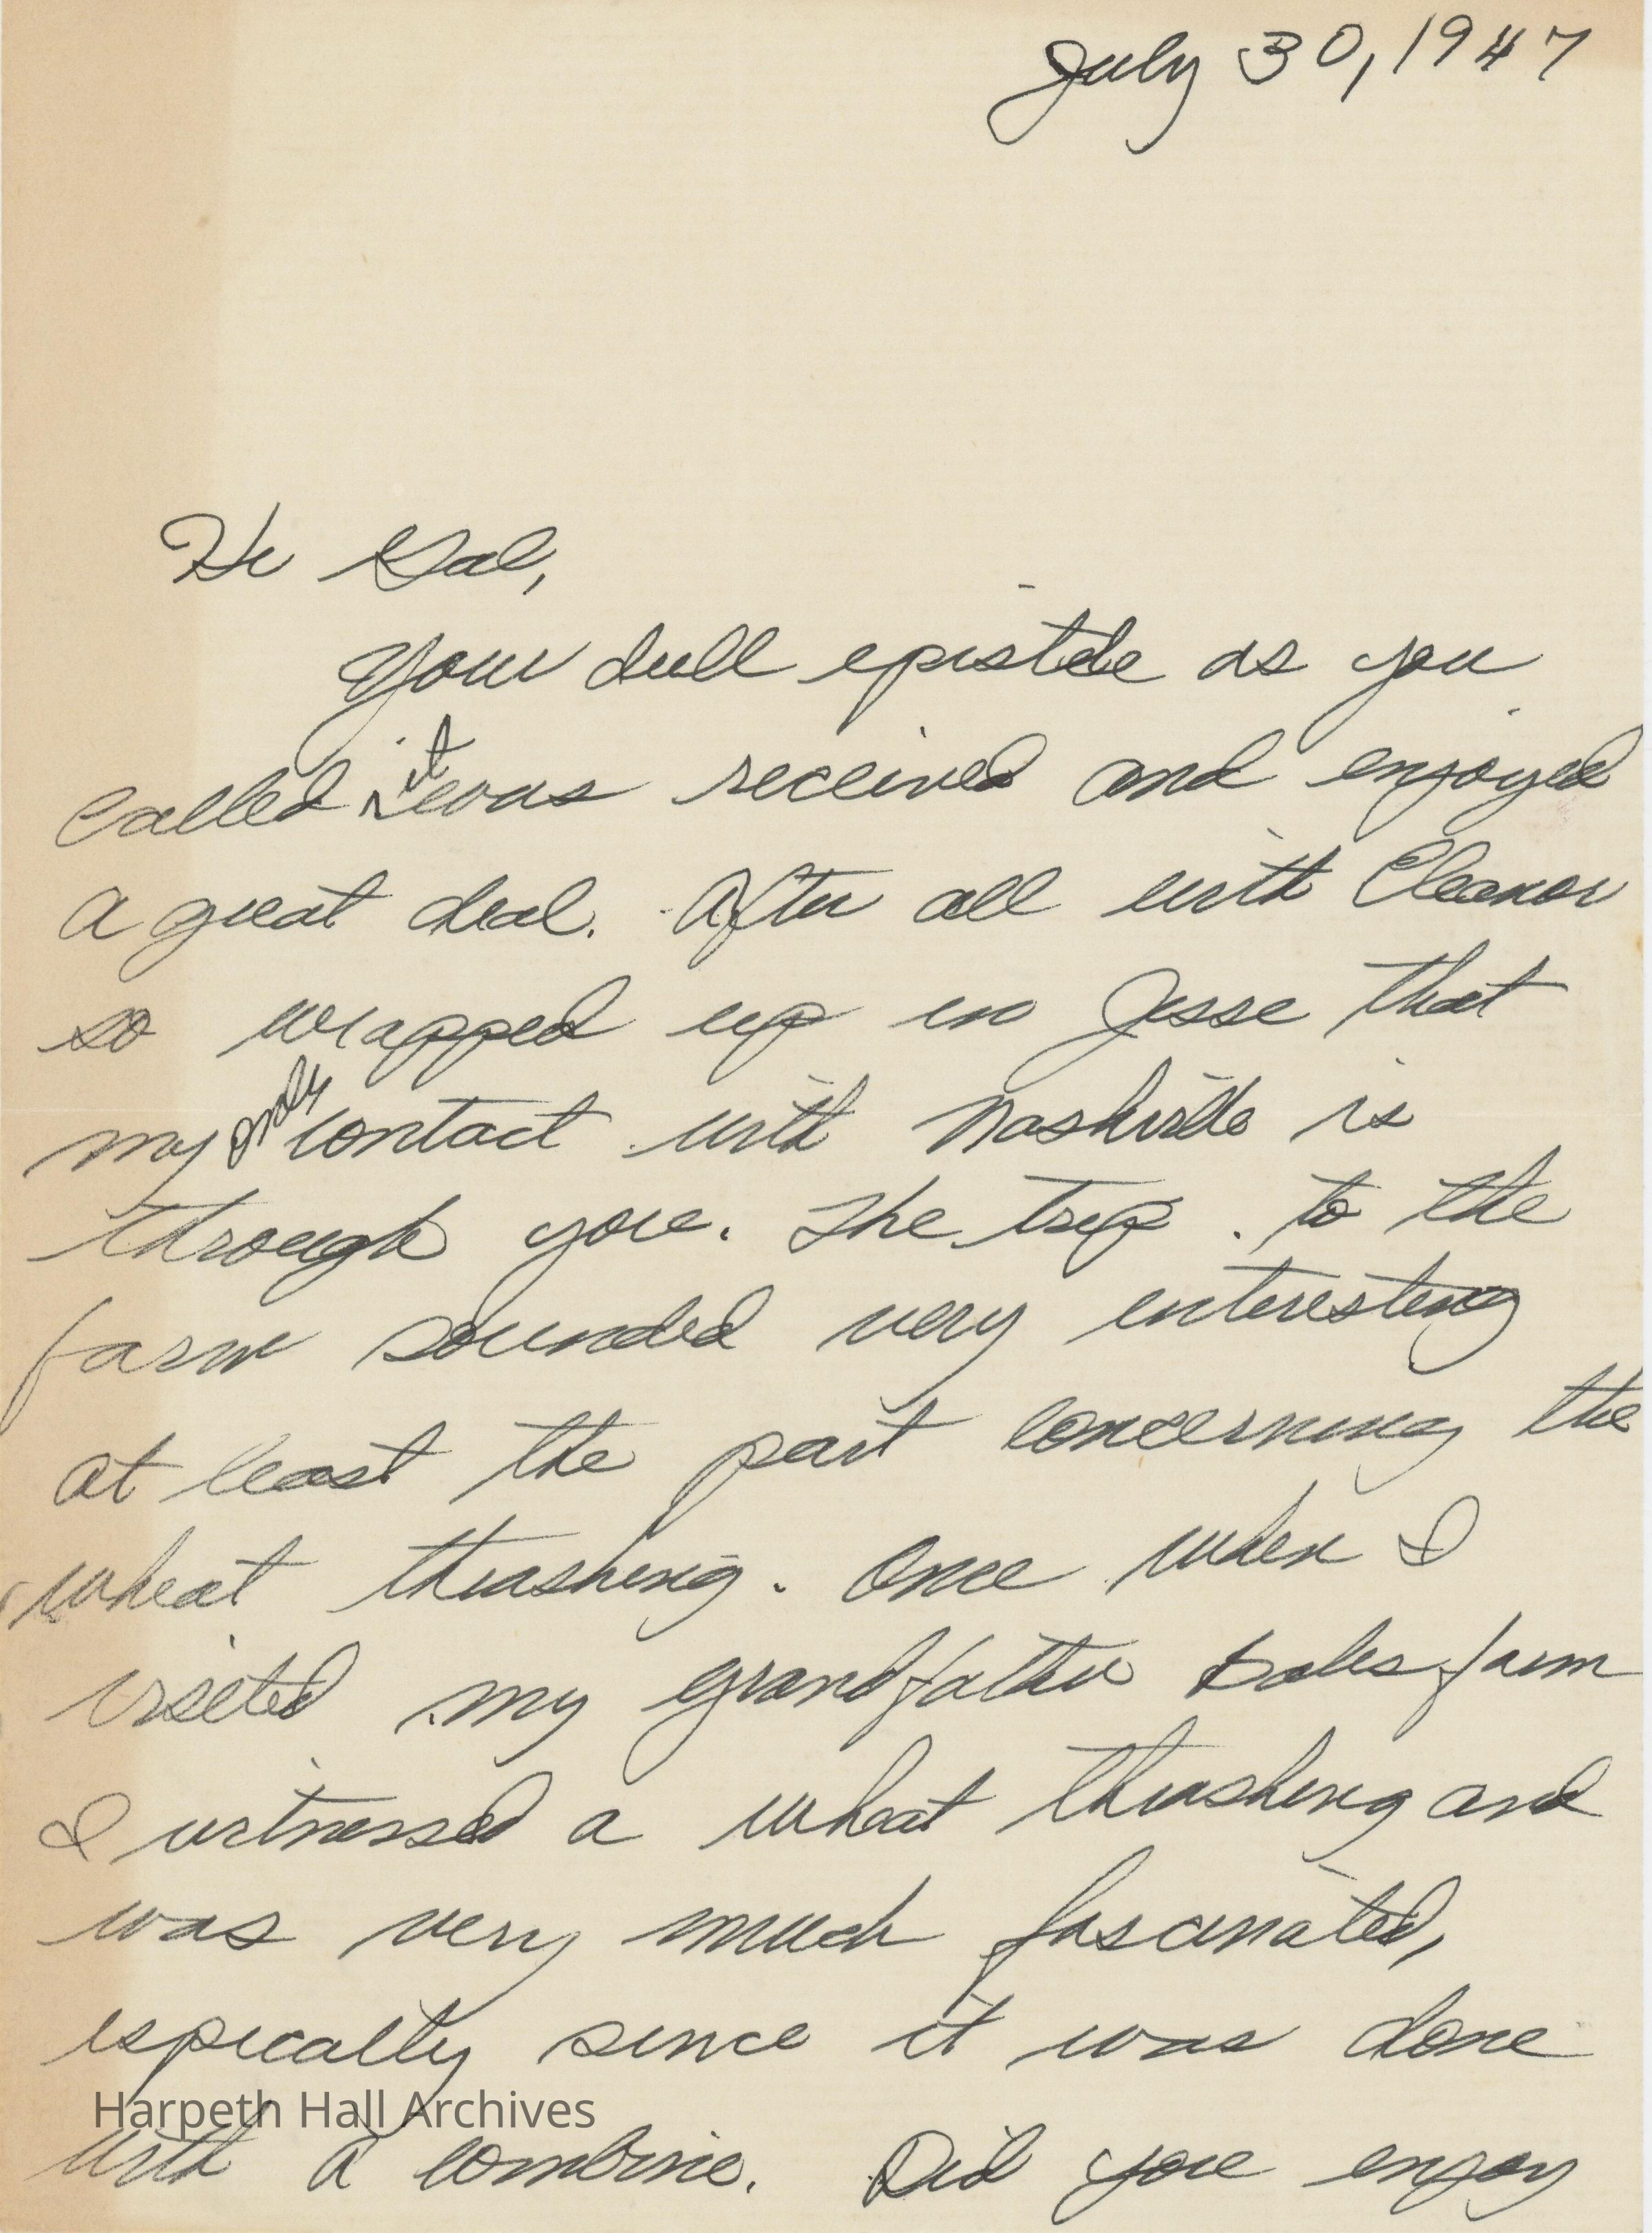 July 30, 1947
Hi Gal,
Your dull epistle as you
called it was received and enjoyed
a great deal. After all with Eleanor
so wrapped up in Jesse that
my only contact with Nashville is
through you. The trip to the
farm sounded very interesting
at least the part concerning the
wheat thrashing. Once when I
visited my grandfather farm
I witnessed a wheat thrashing and
was very much fascinated,
espically since it was done
Harpeth Hall Archives
with a combine. Did you enjoy